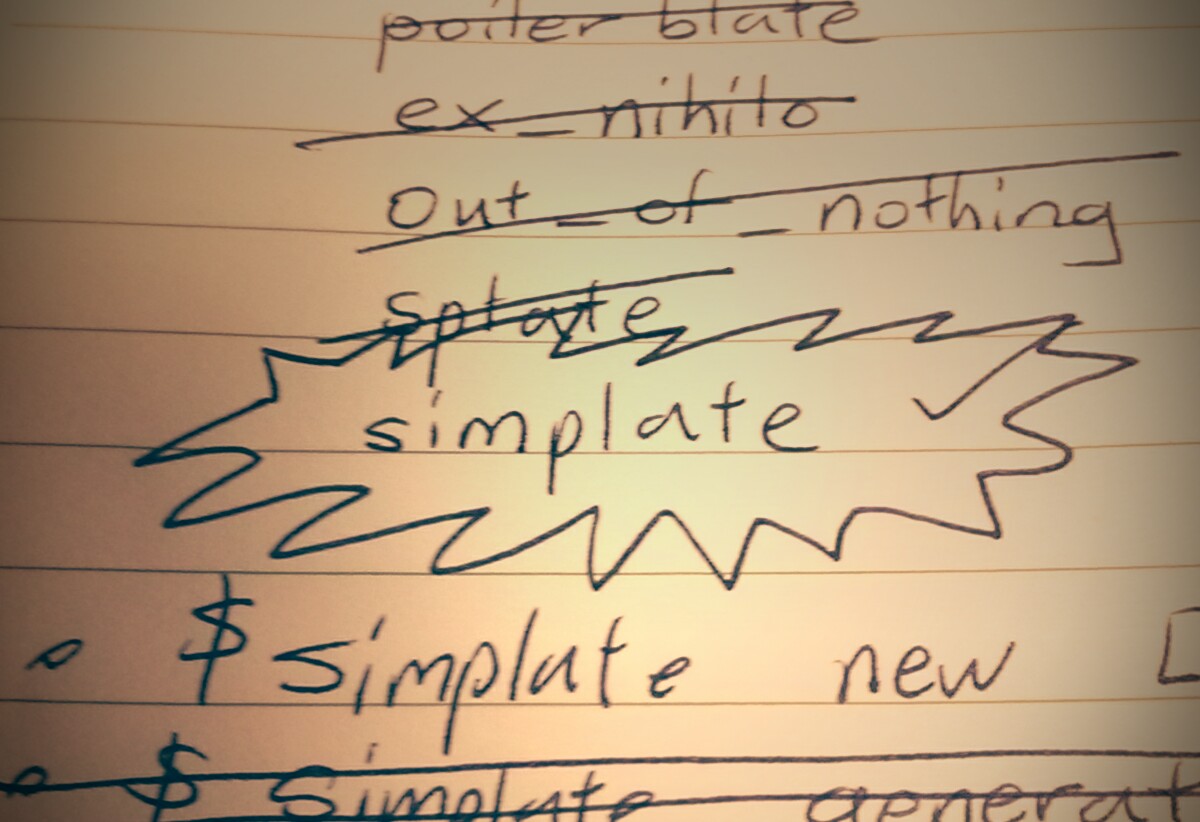 poiler blate
ex_nihilo
out_of_nothing
splate
simplate
$ simplate new [
$ simplate generat